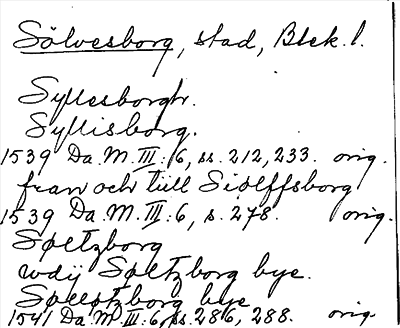 Sölvesborg, stad, Blek. l.
Syllesborgh.
Syllisborg.
1539 Da. M. III: 6, ss. 212, 233. orig.
fran och till Siolffsborg
1539 Da. M. III: 6, s. 278. orig.
Spltzborg
wdij Spltzborg bye.
bye
1541 Da. M. III: 6, ss. 286, 288. orig.